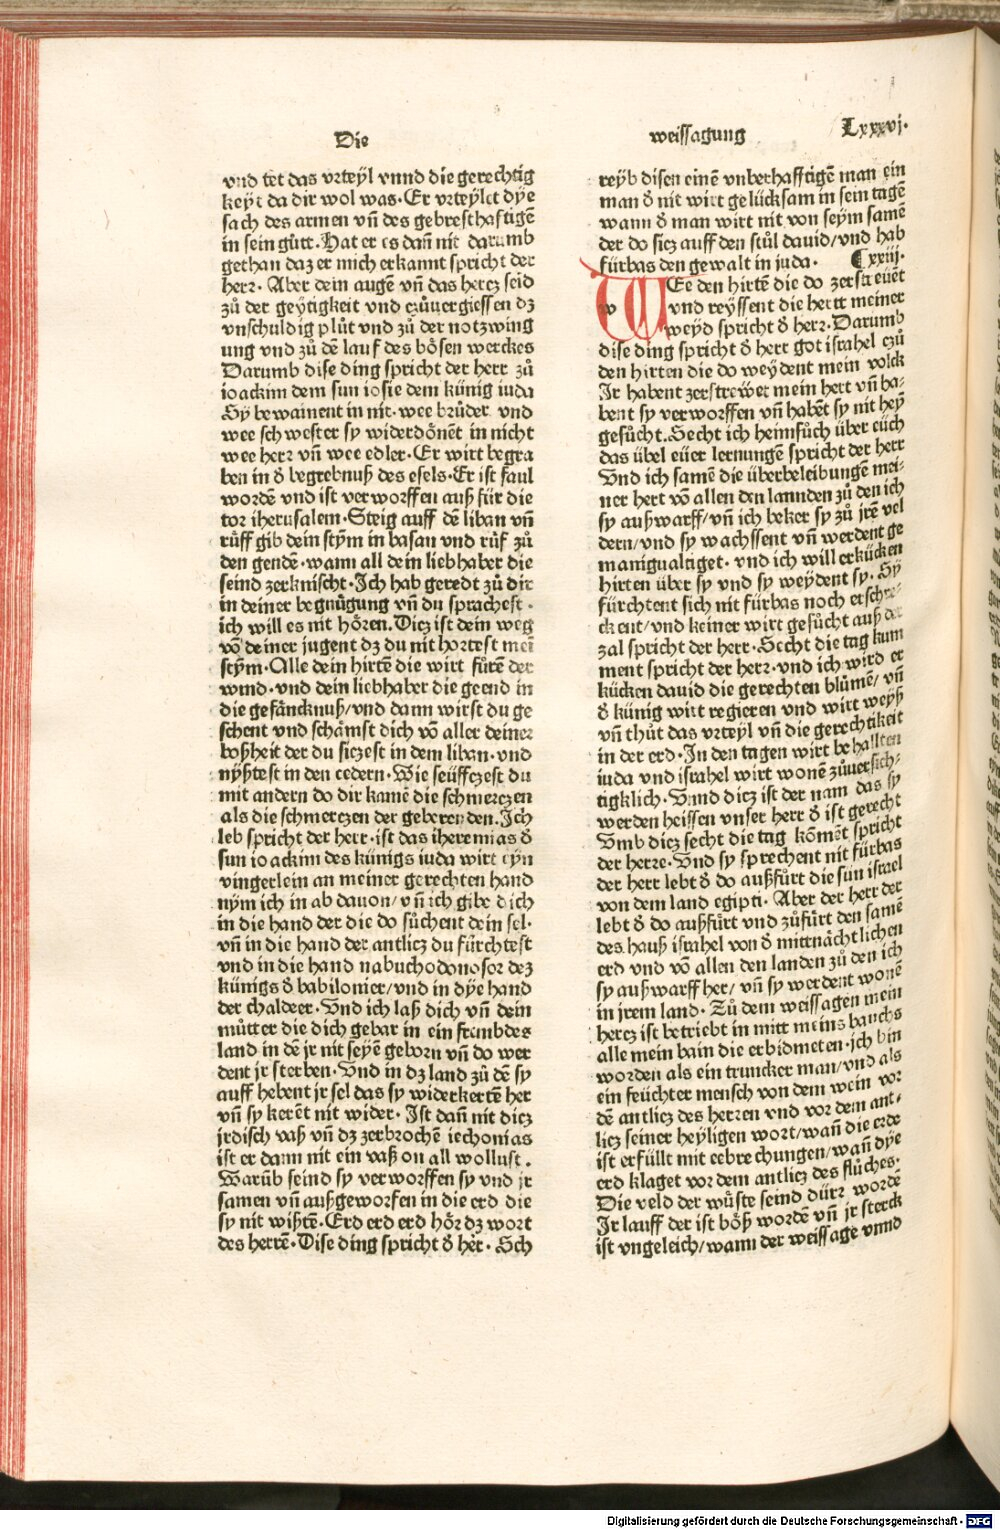 Die
weissagung
Lxxxvj.
vnd tet das vrteyl vnnd die gerechtig
keyt da dir wol was. Er vrteylet dye
sach des armen vñ des gebresthaftigẽ
in sein gůtt. Hat er es dañ nit darumb
gethan daz er mich erkannt spricht der
herr. Aber dein augẽ vñ das hercz seid
zů der geytigkeit vnd czůuergiessen dz
vnschuldig plůt vnd zů der notzwing
ung vnd zů dẽ lauf des bősen werckes
Darumb dise ding spricht der herr zů
ioackim dem sun iosie dem künig iuda
Sy bewainent in nit. wee brůder vnd
wee schwester sy widerdőnẽt in nicht
wee herr vñ wee edler. Er wirt begra
ben in d̃ begrebnuß des esels. Er ist faul
wordẽ vnd ist verworffen auß für die
tor iherusalem. Steig auff dẽ liban vñ
růff gib dein stym̃ in basan vnd růf zů
den gendẽ. wann all dein liebhaber die
seind zerknischt. Ich hab geredt zů dir
in deiner begnůgung vñ du sprachest.
ich will es nit hőren. Dicz ist dein weg
võ deiner jugent dz du nit hortest mei
stym̃. Alle dein hirtẽ die wirt fůrẽ der
wind. vnd dein liebhaber die geend in
die gefåncknuß/vnd dann wirst du ge
schent vnd schåmst dich võ aller deiner
boßheit der du siczest in dem liban. vnd
nyßtest in den cedern. Wie seüffczest du
mit andern do dir kamẽ die schmerczen
als die schmerczen der geberenden. Ich
leb spricht der herr. ist das iheremias d̃
sun ioackim des künigs iuda wirt eyn
vingerlein an meiner gerechten hand
nym̃ ich in ab dauon/vñ ich gibe dich
in die hand der die do sůchent dein sel.
vñ in die hand der antlicz du fürchtest
vnd in die hand nabuchodonosor dez
künigs d̃ babilonier/vnd in dye hand
der chaldeer. Vnd ich laß dich vñ dein
můtter die dich gebar in ein frembdes
land in dẽ jr nit seyẽ geborn vñ do wer
dent jr sterben. Vnd in dz land zů dẽ sy
auff hebent jr sel das sy widerkertẽ her
vñ sy kerẽt nit wider. Ist dañ nit dicz
jrdisch vaß vñ dz zerbrochẽ iechonias
ist er dann nit ein vaß on all wollust.
Warũb seind sy verworffen sy vnd jr
samen vñ außgeworfen in die erd die
sy nit wißtẽ. Erd erd erd hőr dz wort
des herrẽ. Dise ding spricht d̃ her. Sch
reyb disen einẽ vnberhafftigẽ man ein
man d̃ nit wirt gelücksam in sein tagẽ
wann d̃ man wirt nit von seym samẽ
der do sicz auff den stůl dauid/vnd hab
fürbas den gewalt in juda. ¶ xxiij.
WEe den hirtẽ die do zerstreuẽt
vnd reyssent die hertt meiner
weyd spricht d̃ herr. Darumb
dise ding spricht d̃ herr got israhel czů
den hirten die do weydent mein volck
Ir habent zerströwet mein hert vñ ha-
bent sy verworffen vñ habẽt sy nit hey
gesůcht. Secht ich heimsůch über eüch
das übel eüer lernungẽ spricht der herr
Vnd ich samẽ die überbeleibungẽ mei-
ner hert võ allen den lannden zů den ich
sy außwarff/vñ ich beker sy zů jrẽ vel
dern/vnd sy wachssent vñ werdent ge
manigualtiget. vnd ich will erkücken
hirten über sy vnd sy weydent sy. Sy
fürchtent sich nit fürbas noch erschre-
ckent/vnd keiner wirt gesůcht auß der
zal spricht der herr. Secht die tag kum
ment spricht der herr. vnd ich wird er
kücken dauid die gerechten blůmẽ/ vñ
d̃ künig wirt regieren vnd wirt weyß
vñ thůt das vrteyl vñ die gerechtikeit
in der erd. In den tagen wirt behallten
iuda vnd israhel wirt wonẽ zůuersich-
tigklich. Vnnd dicz ist der nam das sy
werden heissen vnser herr d̃ ist gerecht
Vmb dicz secht die tag kőmẽt spricht
der herre. Vnd sy sprechent nit fürbas
der herr lebt d̃ do außfůrt die sun israel
von dem land egipti. Aber der herr der
lebt d̃ do außfürt vnd zůfürt den samẽ
des hauß israhel von d̃ mittnåchtlichen
erd vnd võ allen den landen zů den ich
sy außwarff her/ vñ sy werdent wonẽ
in jrem land. Zů dem weissagen mein
hercz ist betriebt in mitt meins bauchs
alle mein bain die erbidmeten. ich bin
worden als ein truncker man/vnd als
ein feüchter mensch von dem wein vor
dẽ antlicz des herren vnd vor dem ant-
licz seiner heyligen wort/wañ die erde
ist erfüllt mit eebrechungen/wañ dye
erd klaget vor dem antlicz des flůches.
Die veld der wůste seind dürr wordẽ
Ir lauff der ist bőß wordẽ vñ jr sterck
ist vngeleich/wann der weissage vnnd
Digitalisierung gefördert durch die Deutsche Forschungsgemeinschaft - DFG